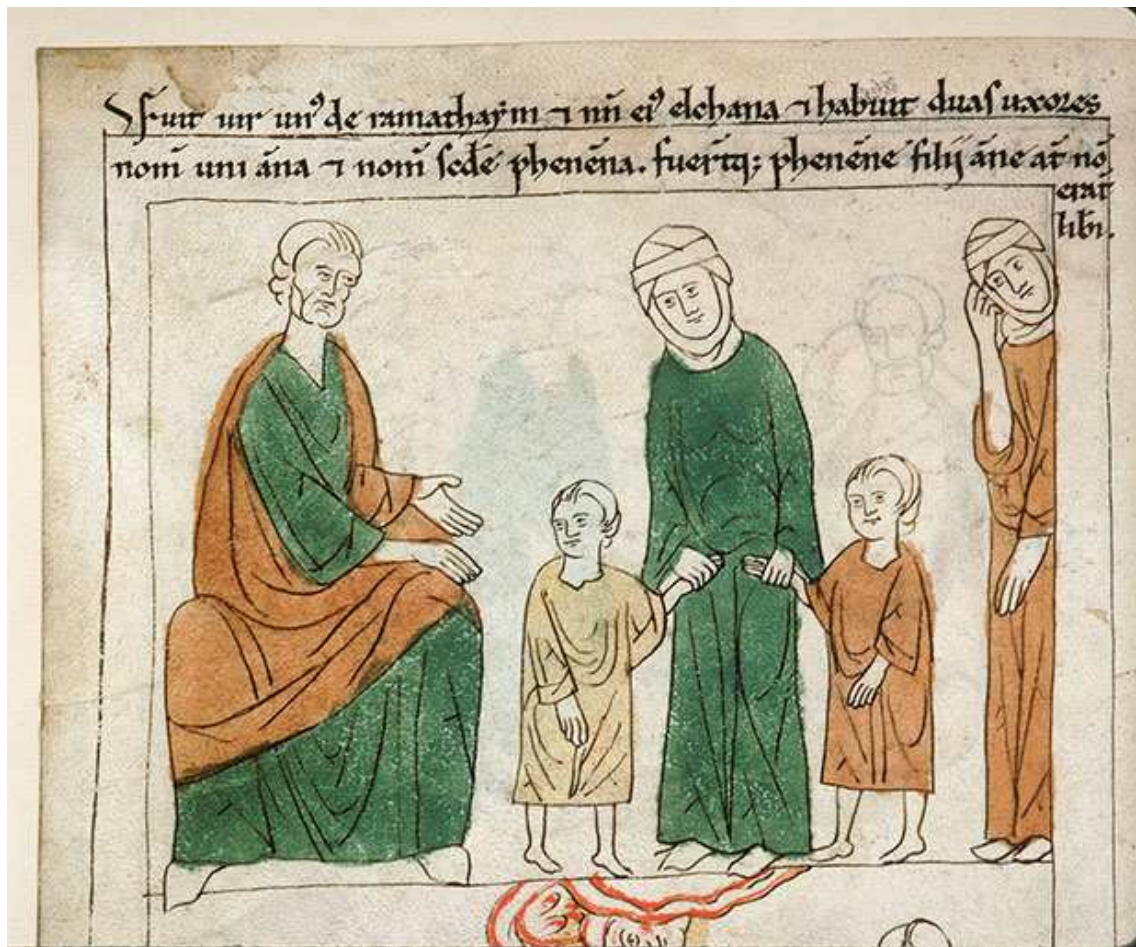 Fuit uir un⁹ de ramathaym ⁊ nm̄ ei⁹ elchana ⁊ habuit duas uxores
nom̄ uni āna ⁊ nom̄ scd̄e phenēna. fuer̄tq; phenēne filij āne at̄ nō
erāt
lib̄i.